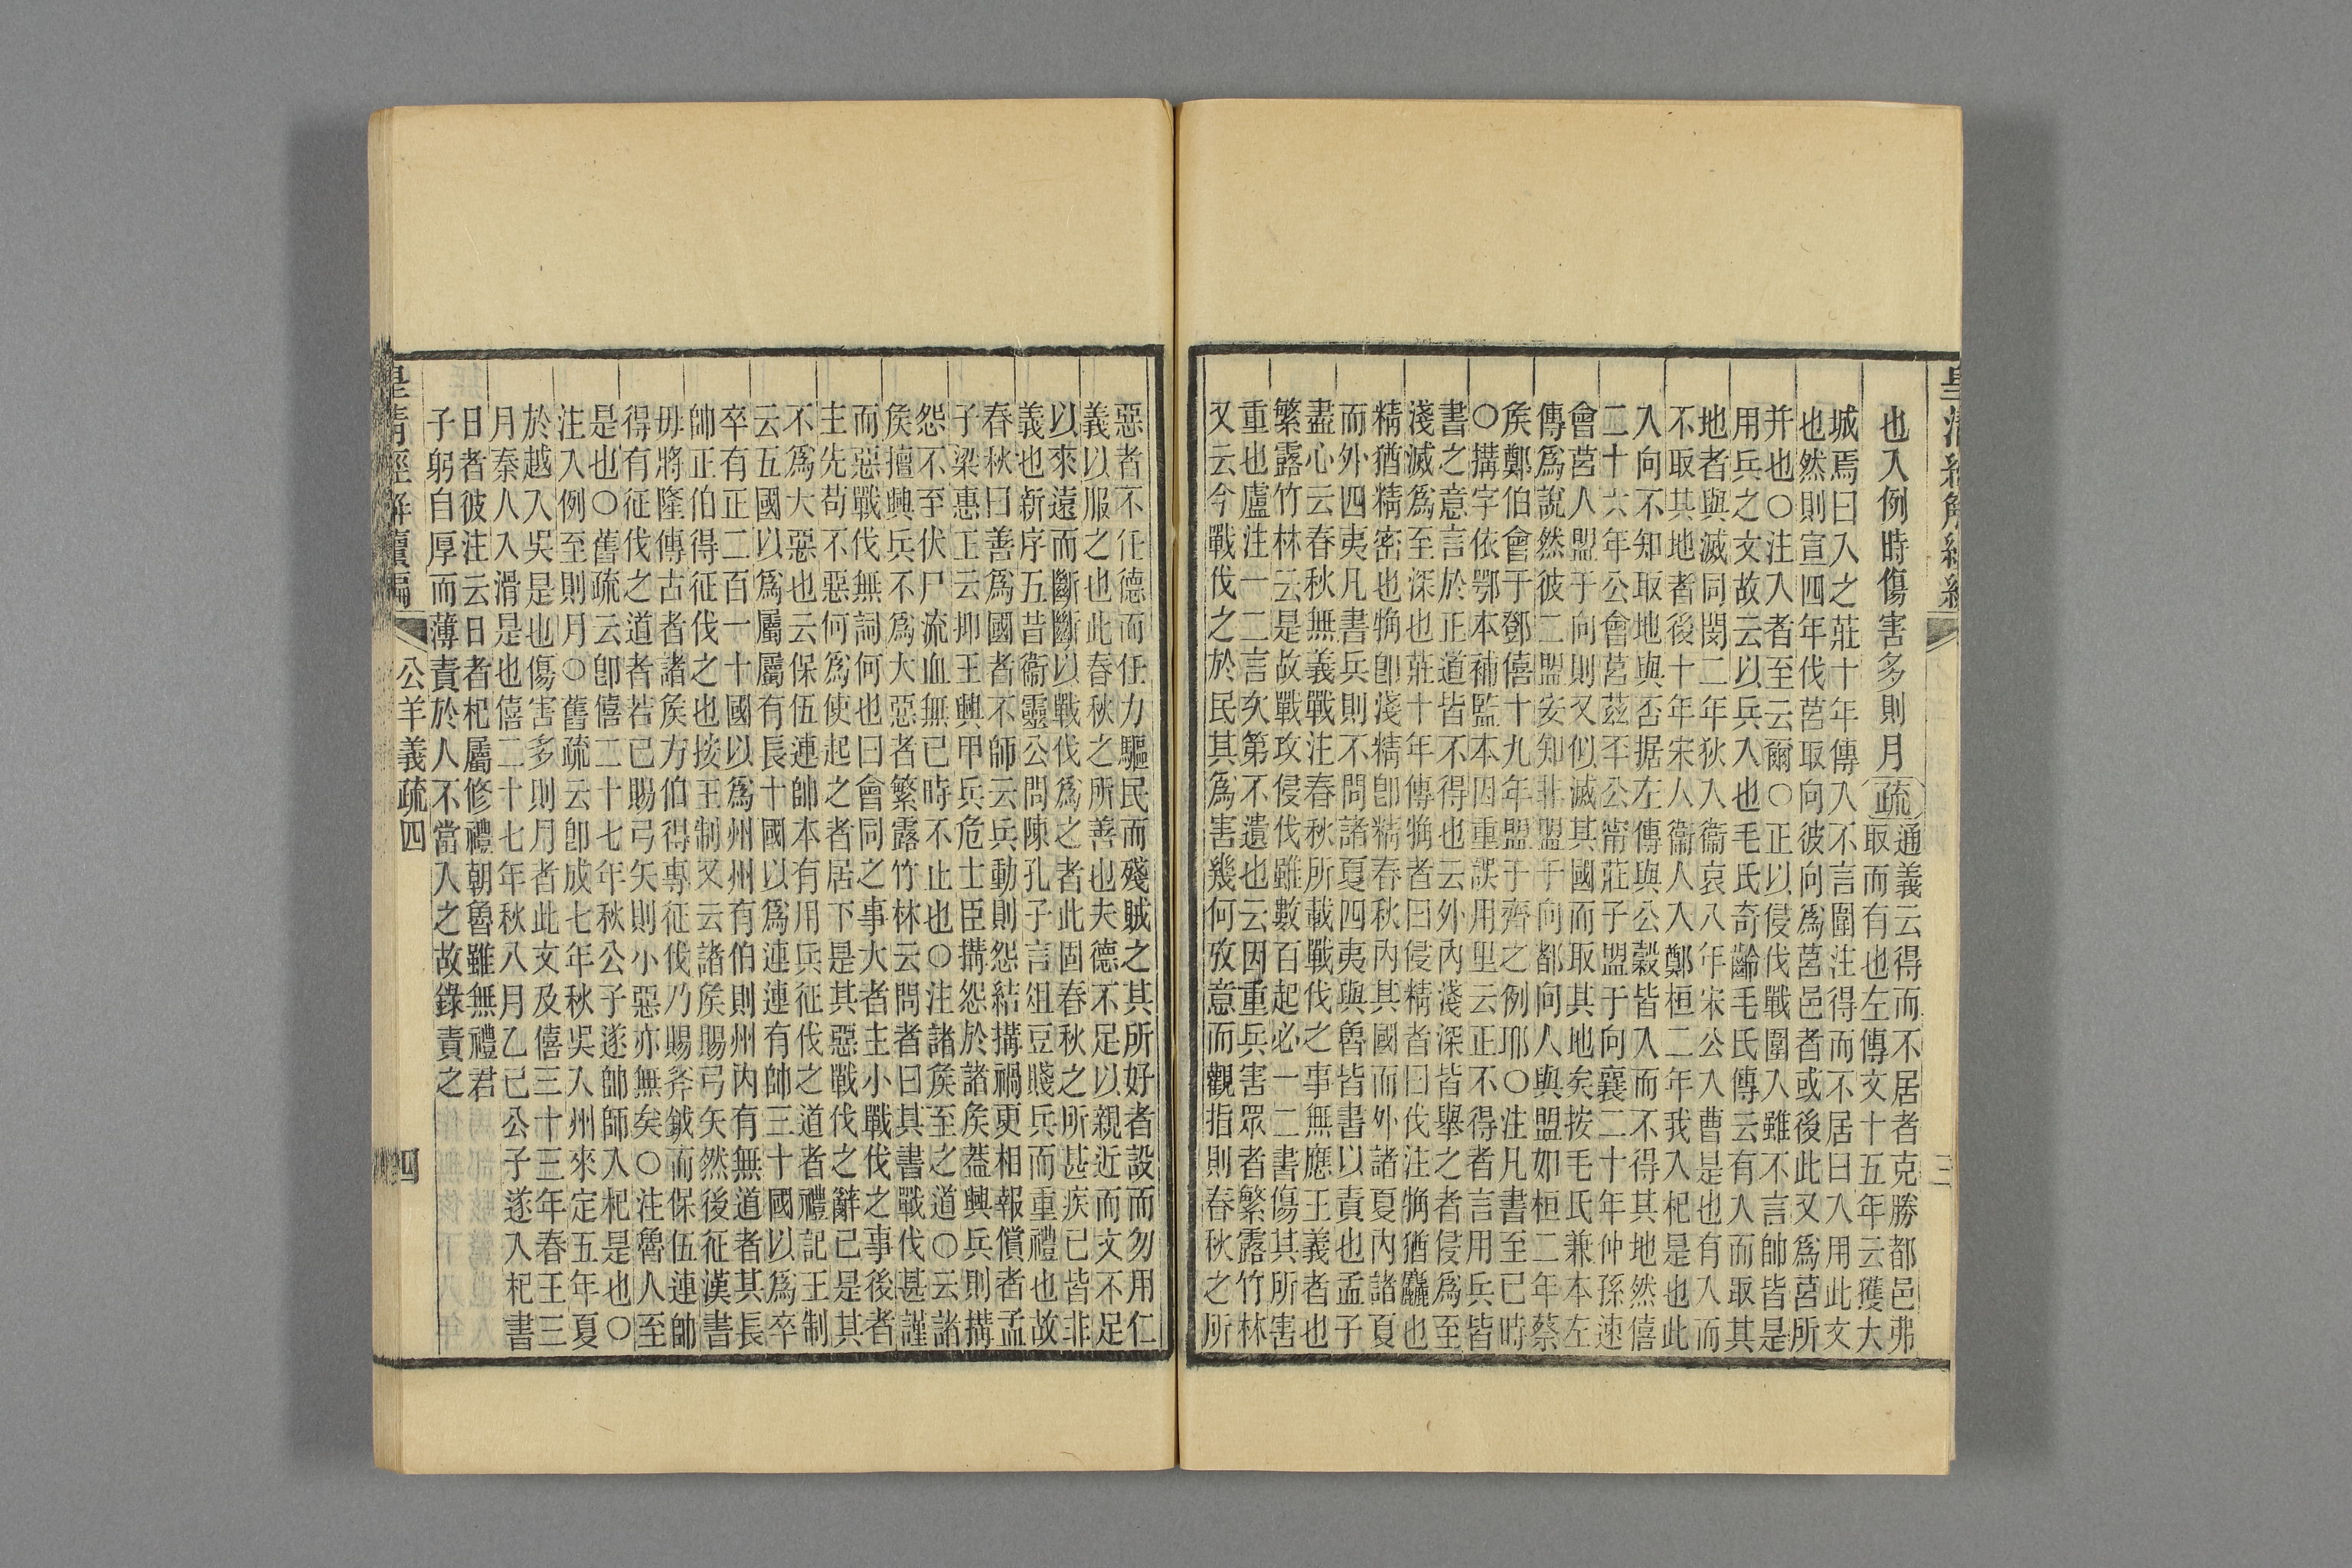 三
也入例時傷害多則月疏通義云得而不居者克勝都邑弗
取而有也左傳文十五年云獲大
城焉曰入之莊十年傳入不言圍注得而不居曰入用此文
也然則宣四年伐莒取向彼向爲莒邑者或後此又爲莒所
并也○注入者至云爾○正以侵伐戰圍入雖不言帥皆是
用兵之文故云以兵入也毛氏奇齡毛氏傳云有人而取其
地者與滅同閔二年狄入衞哀八年宋公入曹是也有入而
不取其地者後十年宋人衞人入鄭桓二年我入杞是也此
入向不知取地與否据左傳與公穀皆入而不得其地然僖
二十六年公會莒茲㔻公甯莊子盟于向襄二十年仲孫速
會莒人盟于向則又似滅其國而取其地矣按毛氏兼本左
傳爲說然彼二盟安知非盟于向都向人與盟如桓二年蔡
矦鄭伯會于鄧僖十九年盟于齊之例耶○注凡書至已時
○搆字依鄂本補監本四重誤用里云正不得者言用兵皆
書之意言於正道皆不得也云外內淺深皆舉之者侵爲至
淺滅爲至深也莊十年傳觕者曰侵精者曰伐注觕猶麤也
精猶精密也觕卽淺精卽精春秋內其國而外諸夏內諸夏
而外四夷凡書兵則不問諸夏四夷與魯皆書以責也孟子
盡心云春秋無義戰注春秋所載戰伐之事無應王義者也
繁露竹林云是故戰攻侵伐雖數百起必一二書傷其所害
重也盧注一二言矢第不遺也云因重兵害眾者繁露竹林
又云今戰伐之於民其爲害幾何攷意而觀指則春秋之所
惡者不任德而任力驅民而殘賊之其所好者設而勿用仁
義以服之也此春秋之所善也夫德不足以親近而文不足
以來遠而斷斷以戰伐爲之者此固春秋之所甚疾已皆非
義也新序五昔衞靈公問陳孔子言俎豆賤兵而重禮也故
春秋曰善爲國者不師云兵動則怨結搆禍更相報償者孟
子梁惠王云抑王興甲兵危士臣搆怨於諸矦葢興兵則搆
怨不至伏尸流血無已時不止也○注諸矦至之道○云諸
矦擅興兵不爲大惡者繁露竹林云問者曰其書戰伐甚謹
而惡戰伐無詞何也曰會同之事大者主小戰伐之事後者
主先苟不惡何爲使起之者居下是其惡戰伐之辭已是其
不爲大惡也云保伍連帥本有用兵征伐之道者禮記王制
云五國以爲屬屬有長十國以爲連連有帥三十國以爲卒
卒有正二百一十國以爲州州有伯則州內有無道者其長
帥正伯得征伐之也按王制又云諸矦賜弓矢然後征漢書
毋將隆傳古者諸矦方伯得專征伐乃賜斧鉞而保伍連帥
得有征伐之道者若已賜弓矢則小惡亦無矣○注魯人至
是也○舊疏云卽僖二十七年秋公子遂帥師入杞是也○
注入例至則月○舊疏云卽成七年秋吳入州來定五年夏
於越入吳是也傷害多則月者此文及僖三十三年春王三
月秦人入滑是也僖二十七年秋八月乙己公子遂入杞書
日者彼注云日者杞屬修禮朝魯雖無禮君
子躬自厚而薄責於人不當入之故錄責之
皇清經解續編 公羊義疏四 四